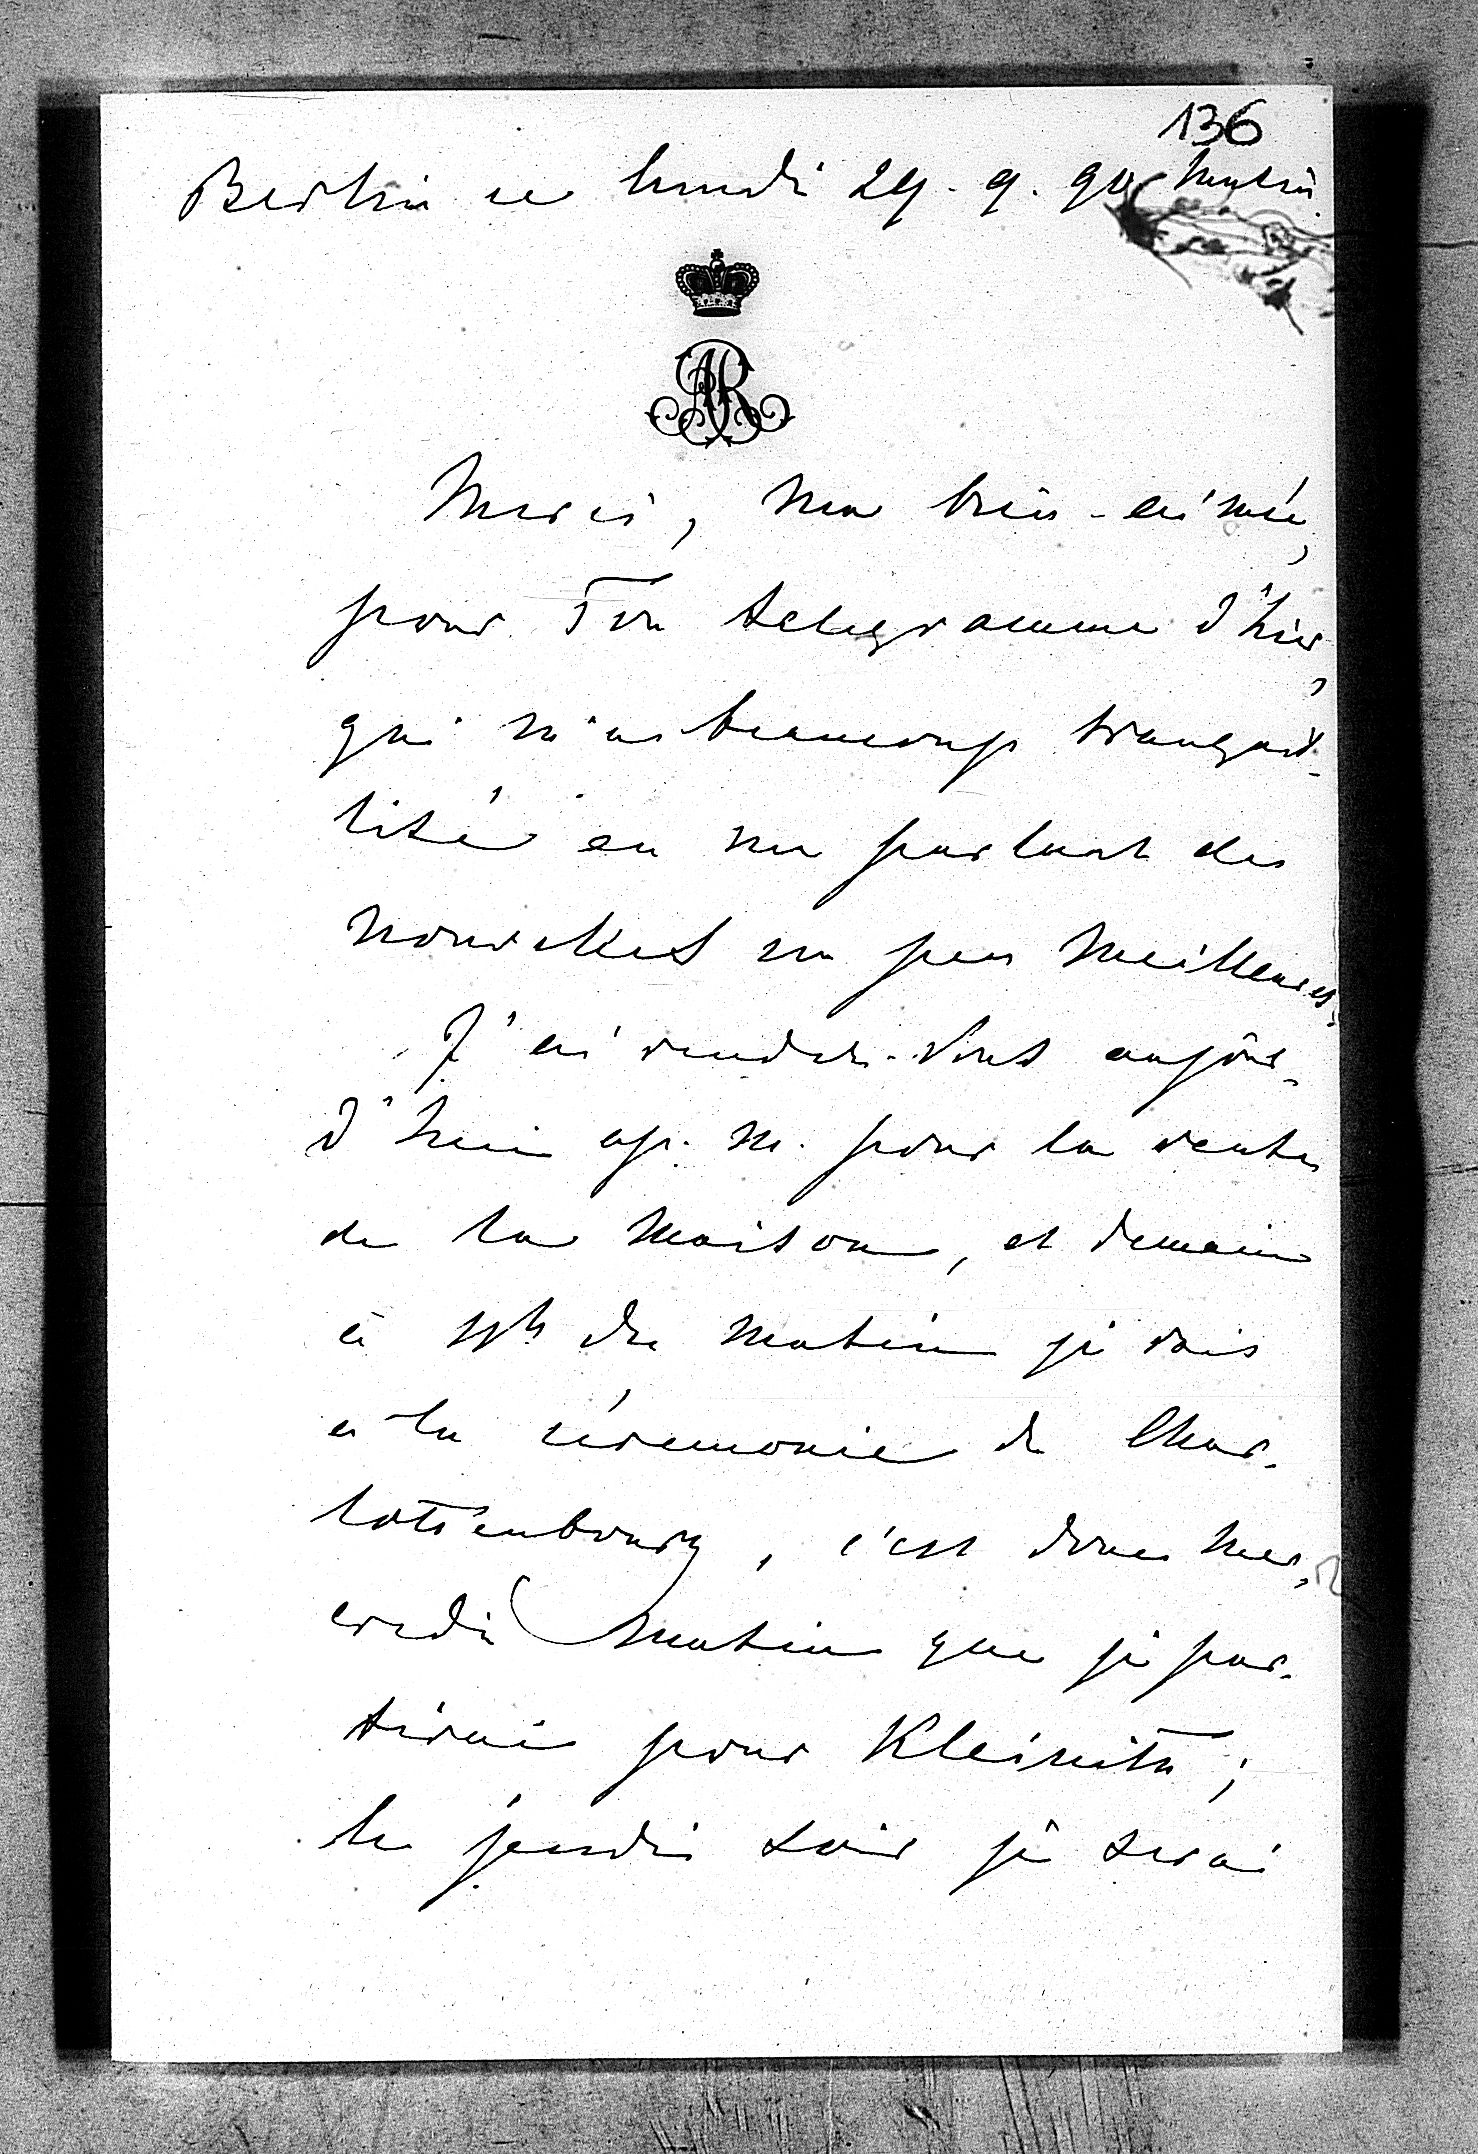 136
Berlin ce lundi 29. 9. 90 matin.
Merci, ma bien-aimée,
pour Ton telegramme d'hier,
qui m'a beaucoup tranquil-
lisé en me parlant des
nouvelles un peu meilleures.
J'ai rendez-vous aujour-
d'hui ap. m. pour la vente
de la maison, et demain
à 11h du matin je vais
à la cérémonie de Char-
lottenbourg, c'est donc mer-
credi matin que je par-
tirai pour Kleinitz;
le jeudi soir je serai